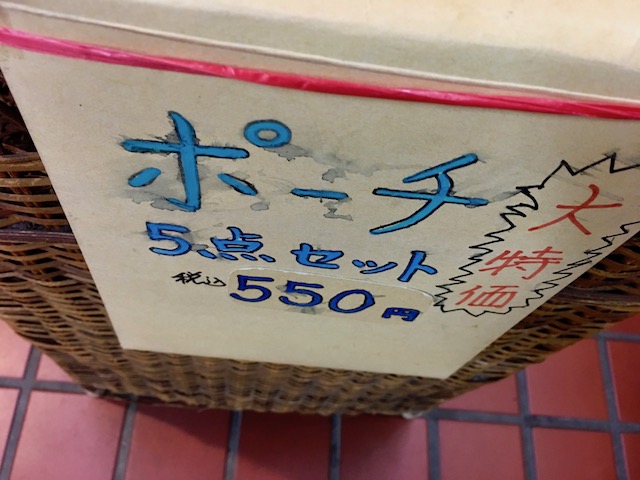 ポーチ
5点セット
税込550円
大特価